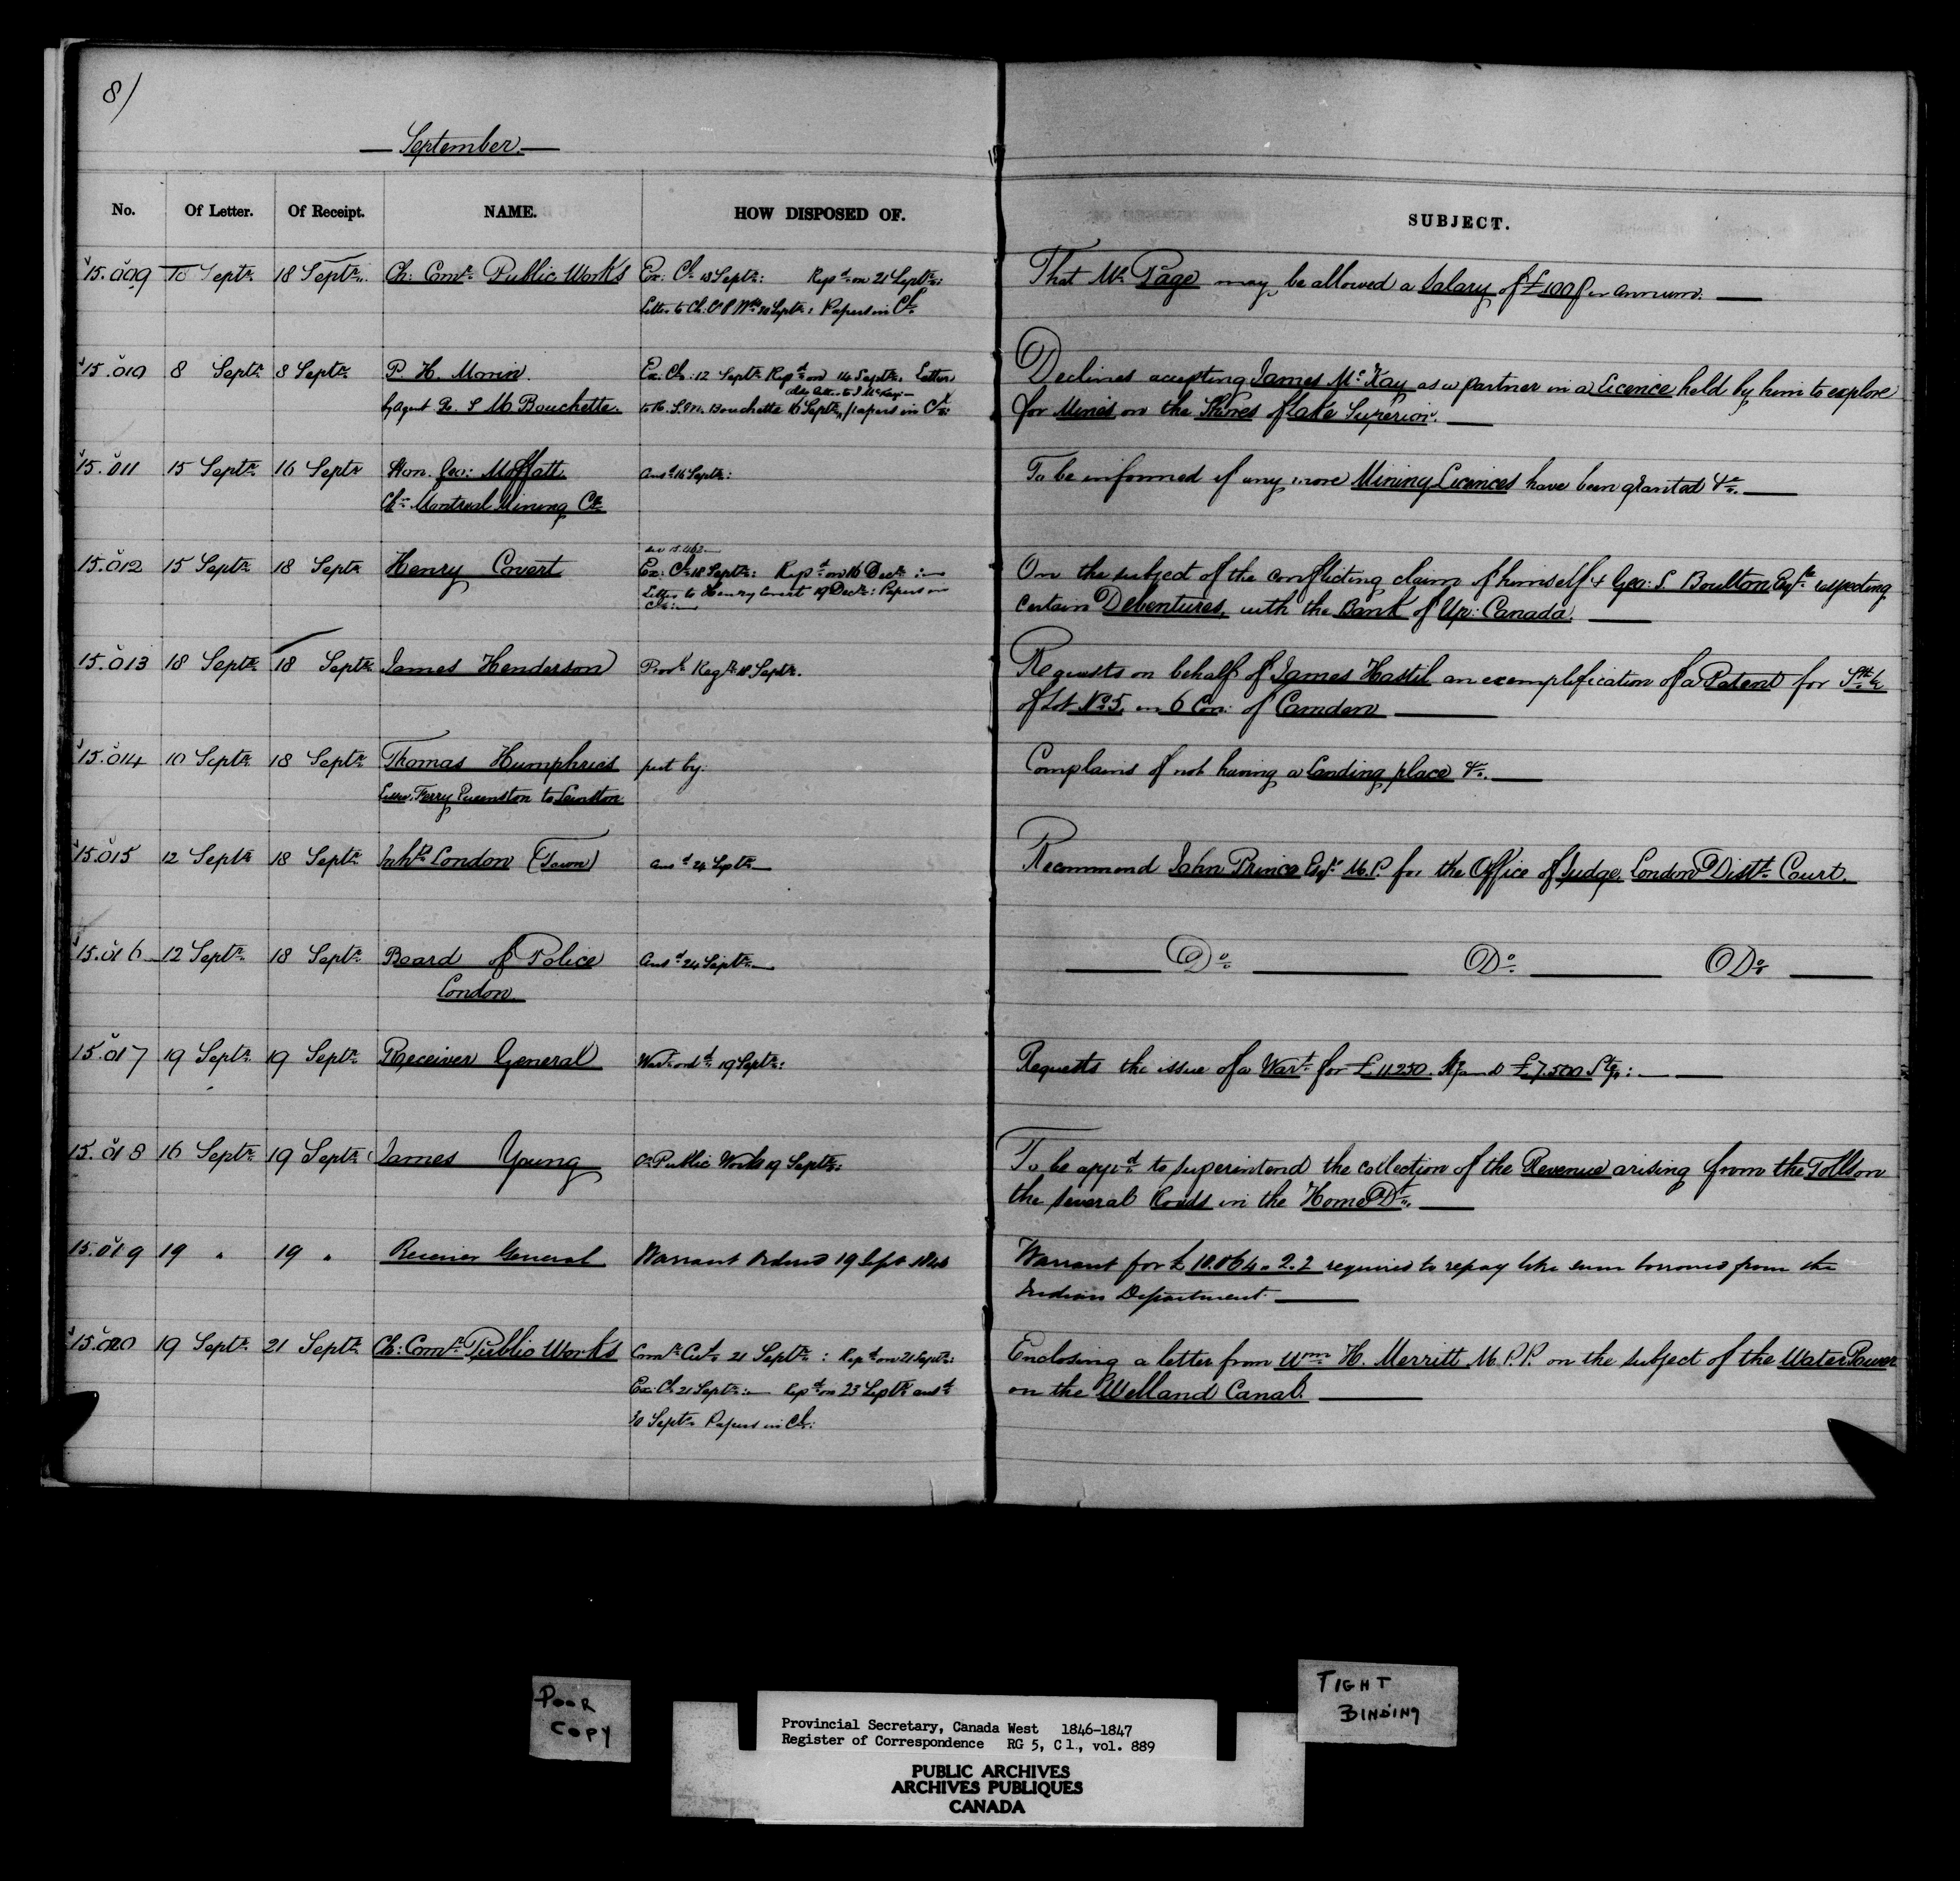 8/
September.
No. Of Letter. Of Receipt. NAME. HOW DISPOSED OF. SUBJECT.
15.009 18 Septr. 18 Septr. Ch: Comr. Public Works Ex: Cl. 18 Septr: Repd. on 21 Septr: That Mr. Page may be allowed a Salary of £100 per annum.
Letter to Ch: C P Wks 22 Septr: Papers in Cl.
15.010 8 Septr. 8 Septr. P. H. Morin. Ex. Cl: 12 Septr. Repd. on 14 Septr. Letter Declines accepting James McKay as a partner in a Licence held by him to explore
also letter to J McKay
by Agent R. S. M. Bouchette. to R. S. M. Bouchette 16 Septr. papers in Cl. for Mines on the Shores of Lake Superior.
15.011 15 Septr. 16 Septr Hon. Geo: Moffatt Ansd. 16 Septr: To be informed if any more Mining Licences have been granted &c.
Chn. Montreal Mining Co.
see 15.462
15.012 15 Septr. 18 Septr Henry Covert Ex: Cl. 18 Septr: Repd. on 16 Decr: On the subject of the conflicting claim of himself & Geo: S. Boulton Esqre. respecting
Letter to Henry Covert 19 Decr: Papers in Cl: certain Debentures, with the Bank of Up: Canada.
15.013 18 Septr. 18 Septr. James Henderson Provl. Regr. 18 Septr. Requests on behalf of James Hastil an exemplification of a Patent for Sth. ½
of Lot No. 5, in 6 Con: of Camden
15.014 10 Septr. 18 Septr. Thomas Humphries put by. Complains of not having a landing place &c.
Lessee, Ferry Queenston to Lewiston
15.015 12 Septr 18 Septr. Inhts. London (Town) ansd. 24 Septr. Recommend John Prince Esqr. M.P. for the Office of Judge, London Distt. Court.
15.016 12 Septr. 18 Septr. Board of Police Ansd. 24 Septr. Do. Do. Do.
London.
15.017 19 Septr. 19 Septr. Receiver General Wart. ordd. 19 Septr: Requests the issue of a Wart. for £11250. and £7.500 Stg:
15.018 16 Septr. 19 Septr. James Young Cn. Public Works 19 Septr: To be appd. to superintend the collection of the Revenue arising from the Tolls on
the several Roads in the Home Dt.
15.019 19 " 19 " Receiver General Warrant Ordered 19 Sept 1846 Warrant for £10.064. 2. 2 required to repay like sum borrowed from the
Indian Department.
15.020 19 Septr. 21 Septr. Ch: Comr. Public Works Comr. Cus. 21 Septr: Repd. on 21 Septr: Enclosing a letter from Wm. H. Merritt M.P.P. on the subject of the Water Power
Ex: Cl. 21 Septr: Repd. on 23 Septr. ansd. on the Welland Canal.
30 Septr. Papers in Cl:
POOR
COPY
TIGHT
BINDING
Provincial Secretary, Canada West 1846-1847
Register of Correspondence RG 5, C1., vol. 889
PUBLIC ARCHIVES
ARCHIVES PUBLIQUES
CANADA